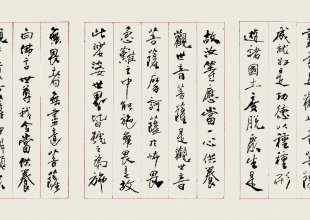 成就如是功德以種種形
遊諸國土度脫眾生是
故汝等應當一心供養
觀世音菩薩是觀世音
菩薩摩訶薩於怖畏
急難之中能施無畏是故
此娑婆世界皆號之為施
無畏者無盡意菩薩
白佛言世尊我今當供養